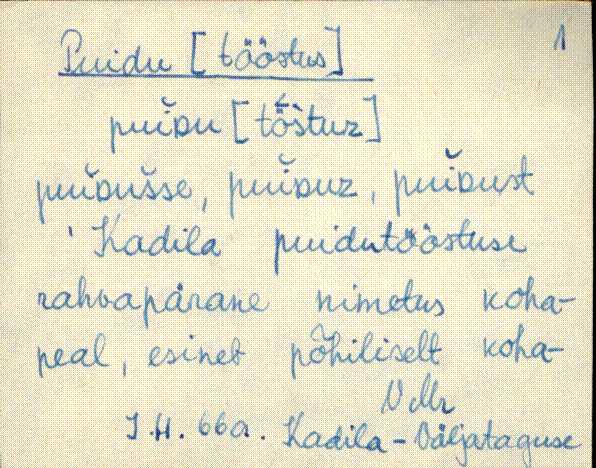 1
Puidu [tööstus]
puiᴅu [tö̀stuz]
puiᴅušse, puiᴅuz, puiᴅust
Kadila puidutööstuse
rahvapärane nimetus koha-
peal, esineb põhiliselt koha-
VMr
J.H. 66a. Kadila-Väljataguse